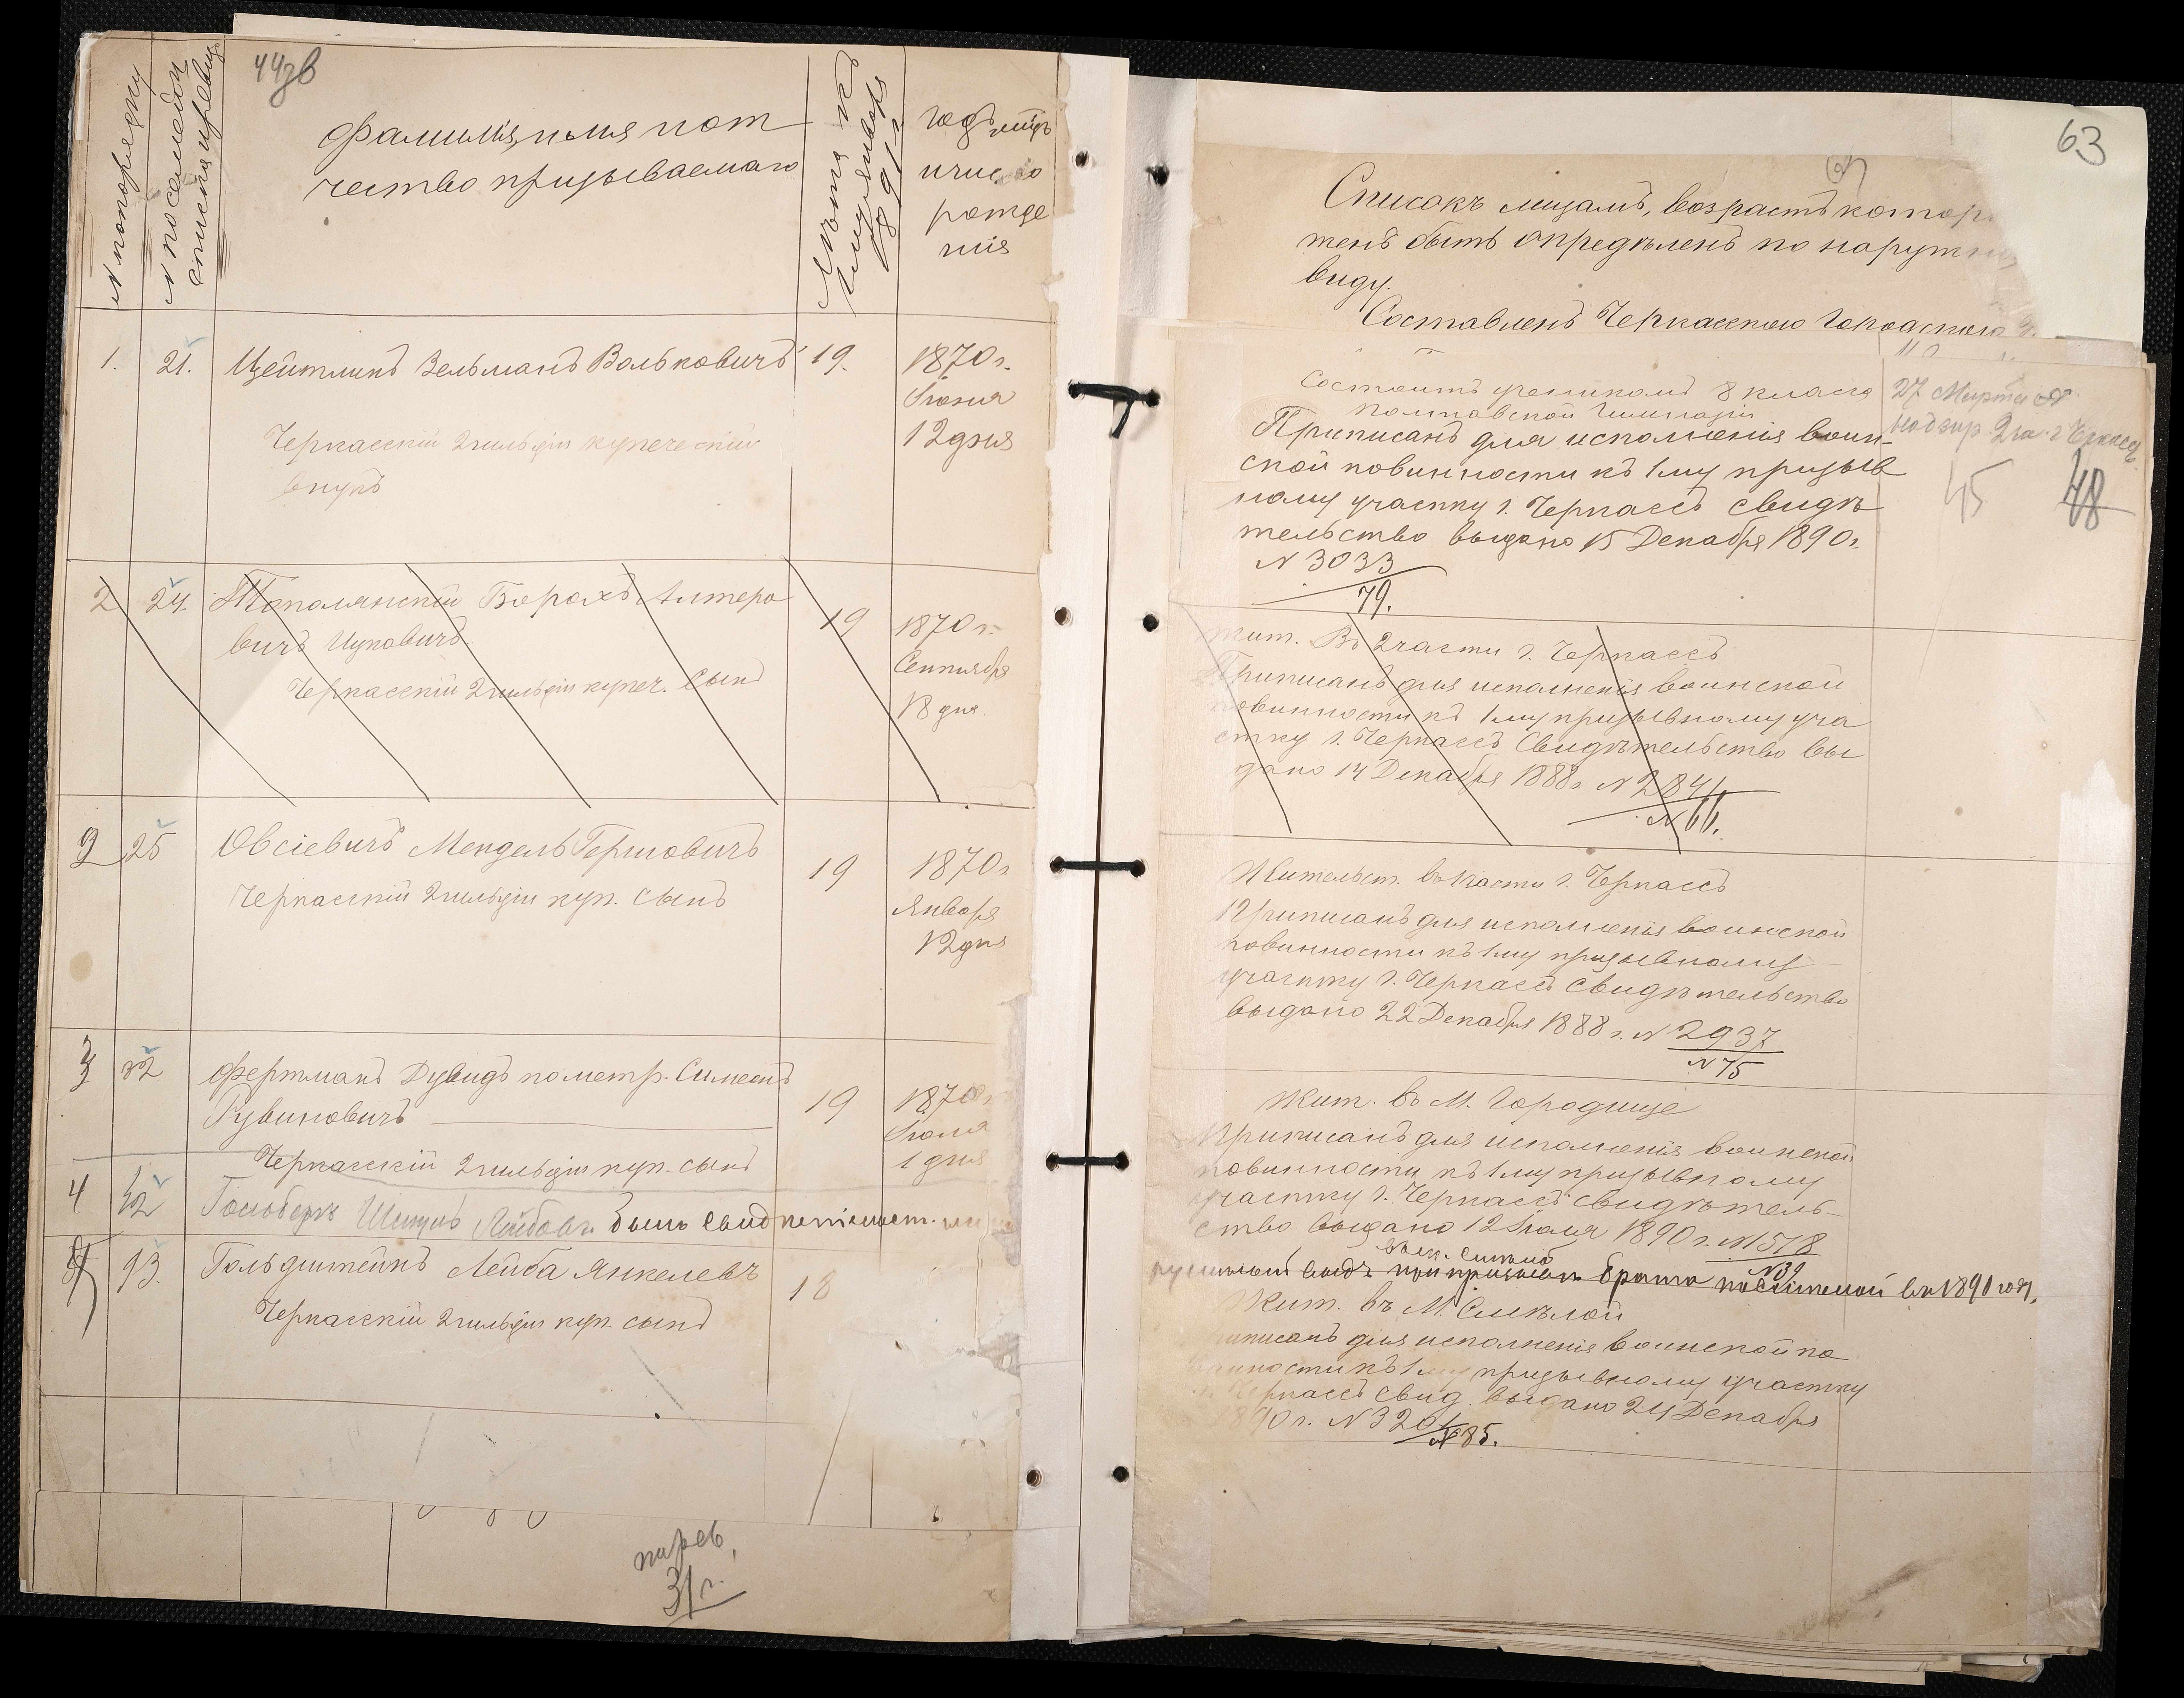 44зв
N попорядку
N посемейн
списка и ревиз
Фамилія, имя и от
чество призываемаго
Лѣта къ
1 Января
1891 г
годъ мцъ
и число
рожде
нія
1.
21.
Цейтлинъ Зельманъ Вольковичъ
19.
1870 г.
Іюня
12 дня
Черкасскій 2 гильдіи купеческій
внукъ
2
24.
Тополянскій Борохъ Алтеро
вичъ Ицковичъ
Черкасскій 2 гильдіи купеч. сынъ
19
1870 г.
Сентября
18 дня
2
25
Овсіевичъ Мендель Гершовичъ
Черкасскій 2 гильдіи куп. сынъ
19
1870 г
Января
12 дня
3
32
Фертманъ Дувидъ по метр. Симеонъ
Рувиновичъ
Черкасскій 2 гильдіи куп. сынъ
19
1870 г
1 дня
4
42
Лейбовъ
5
93.
Гольдштейнъ Лейба Янкелевъ
Черкасскій 2 гильдіи куп. сынъ
18
31 г.
63
Списокъ лицамъ, возрастъ котор
женъ быть опредѣленъ по наружн
виду.
Составленъ Черкасскою Городскою
Состоитъ ученикомъ 8 класса
Полтавской Гимназіи
Приписанъ для исполненія воин-
ской повинности къ 1 му призыв
ному участку г. Черкассъ свидѣ
тельство выдано 15 Декабря 1890 г.
N 3033
79.
27 Марта
45
48
жит. Въ 2 части г. Черкассъ
Приписанъ для исполненія воинской
повинности къ 1 му призывному уча
стку г. Черкассъ Свидѣтельство вы
дано 14 Декабря 1888 г. N 2841
N 66.
Жительст. въ части г. Черкассъ
Приписанъ для исполненія воинской
повинности къ 1 му призывному
участку г. Черкассъ свидѣтельство
выдано 22 Декабря 1888 г. N 2937
N 75
Жит. въ М. Городище
Приписанъ для исполненія воинской
повинности къ 1 му призывному
участку г. Черкассъ свидѣтель-
ство выдано 12 Іюля 1890 г. N 1518
N 39
при призывѣ брата въ 1891 году.
Жит. въ М. Смѣлой
приписанъ для исполненія воинской по
винности къ 1 му призывному участку
г. Черкассъ свид. выдано 24 Декабря
1890 г. N 3204
N 85.